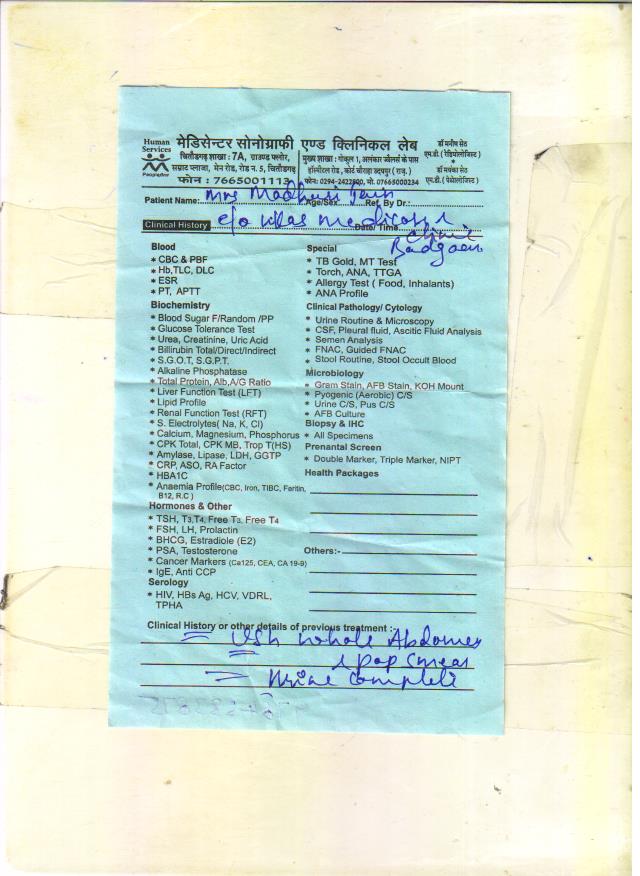 Human Services
मेडिसेन्टर सोनोग्राफी एण्ड क्लिनिकल लेब
चित्तौड़गढ़ शाखा : 7A, ग्राउण्ड फ्लोर,
सम्राट प्लाजा, मेन रोड, रोड न. 5, चित्तौड़गढ़
फोन : 7665001113
मुख्य शाखा : गोकुल 1, अलंकार ज्वैलर्स के पास
हॉस्पीटल रोड, कोर्ट चौराहा उदयपुर (राज.)
फोन: 0294-2422800, मो. 07665000234
डॉ मनीष सेठ
एम.डी. ( रेडियोलोजिस्ट )
डॉ मयंका सेठ
एम.डी. ( पैथोलोजिस्ट )
Patient Name: Mrs Madhuri Jain Age/Sex Ref. By Dr.:
Clinical History c/o Medical Date/ Time
Clinic
Badgaon
Blood
* CBC & PBF
* Hb,TLC, DLC
* ESR
* PT, APTT
Biochemistry
* Blood Sugar F/Random /PP
* Glucose Tolerance Test
* Urea, Creatinine, Uric Acid
* Billirubin Total/Direct/Indirect
* S.G.O.T, S.G.P.T.
* Alkaline Phosphatase
* Total Protein, Alb,A/G Ratio
* Liver Function Test (LFT)
* Lipid Profile
* Renal Function Test (RFT)
* S. Electrolytes( Na, K, Cl)
* Calcium, Magnesium, Phosphorus
* CPK Total, CPK MB, Trop T(HS)
* Amylase, Lipase, LDH, GGTP
* CRP, ASO, RA Factor
* HBA1C
* Anaemia Profile(CBC, Iron, TIBC, Feritin,
B12, R.C )
Hormones & Other
* TSH, T3,T4, Free T3, Free T4
* FSH, LH, Prolactin
* BHCG, Estradiole (E2)
* PSA, Testosterone
* Cancer Markers (Ca125, CEA, CA 19-9)
* IgE, Anti CCP
Serology
* HIV, HBs Ag, HCV, VDRL,
TPHA
Special
* TB Gold, MT Test
* Torch, ANA, TTGA
* Allergy Test ( Food, Inhalants)
* ANA Profile
Clinical Pathology/ Cytology
* Urine Routine & Microscopy
* CSF, Pleural fluid, Ascitic Fluid Analysis
* Semen Analysis
* FNAC, Guided FNAC
* Stool Routine, Stool Occult Blood
Microbiology
* Gram Stain, AFB Stain, KOH Mount
* Pyogenic (Aerobic) C/S
* Urine C/S, Pus C/S
* AFB Culture
Biopsy & IHC
* All Specimens
Prenantal Screen
* Double Marker, Triple Marker, NIPT
Health Packages
Others:-
Clinical History or other details of previous treatment :
= USG whole Abdomen
= & pap smear
= Urine Complete